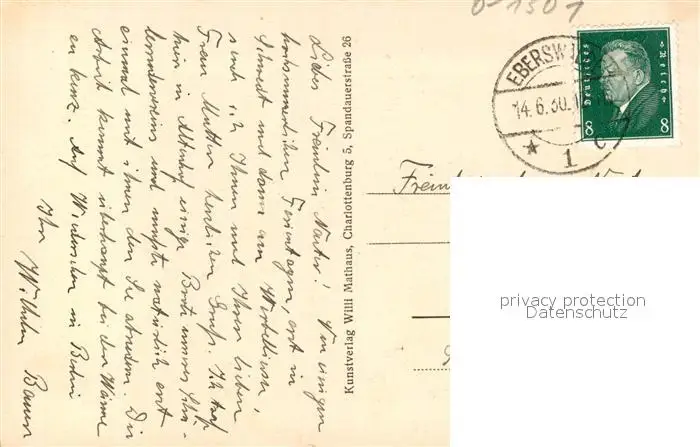 Liebes Fräulein Martin! Von einigen
hochsommerlichen Ferientagen, erst in
Schwedt und dann am Werbellinsee,
sende ich Ihnen und Ihrer lieben
Frau Mutter herzlichen Gruß. Ich traf
hier in Altenhof einige
und mußte natürlich erst
einmal mit ihnen den See abrudern. Die
Arbeit kommt überhaupt bei der Wärme
zu kurz. Auf Wiedersehen in Berlin
Ihr
Wilhelm Bauer
Kunstverlag Willi Mathaus, Charlottenburg 5, Spandauerstraße 26
EBERSW
14.6.30.
* 1 c
Deutsches Reich
8 8
privacy protection
Datenschutz